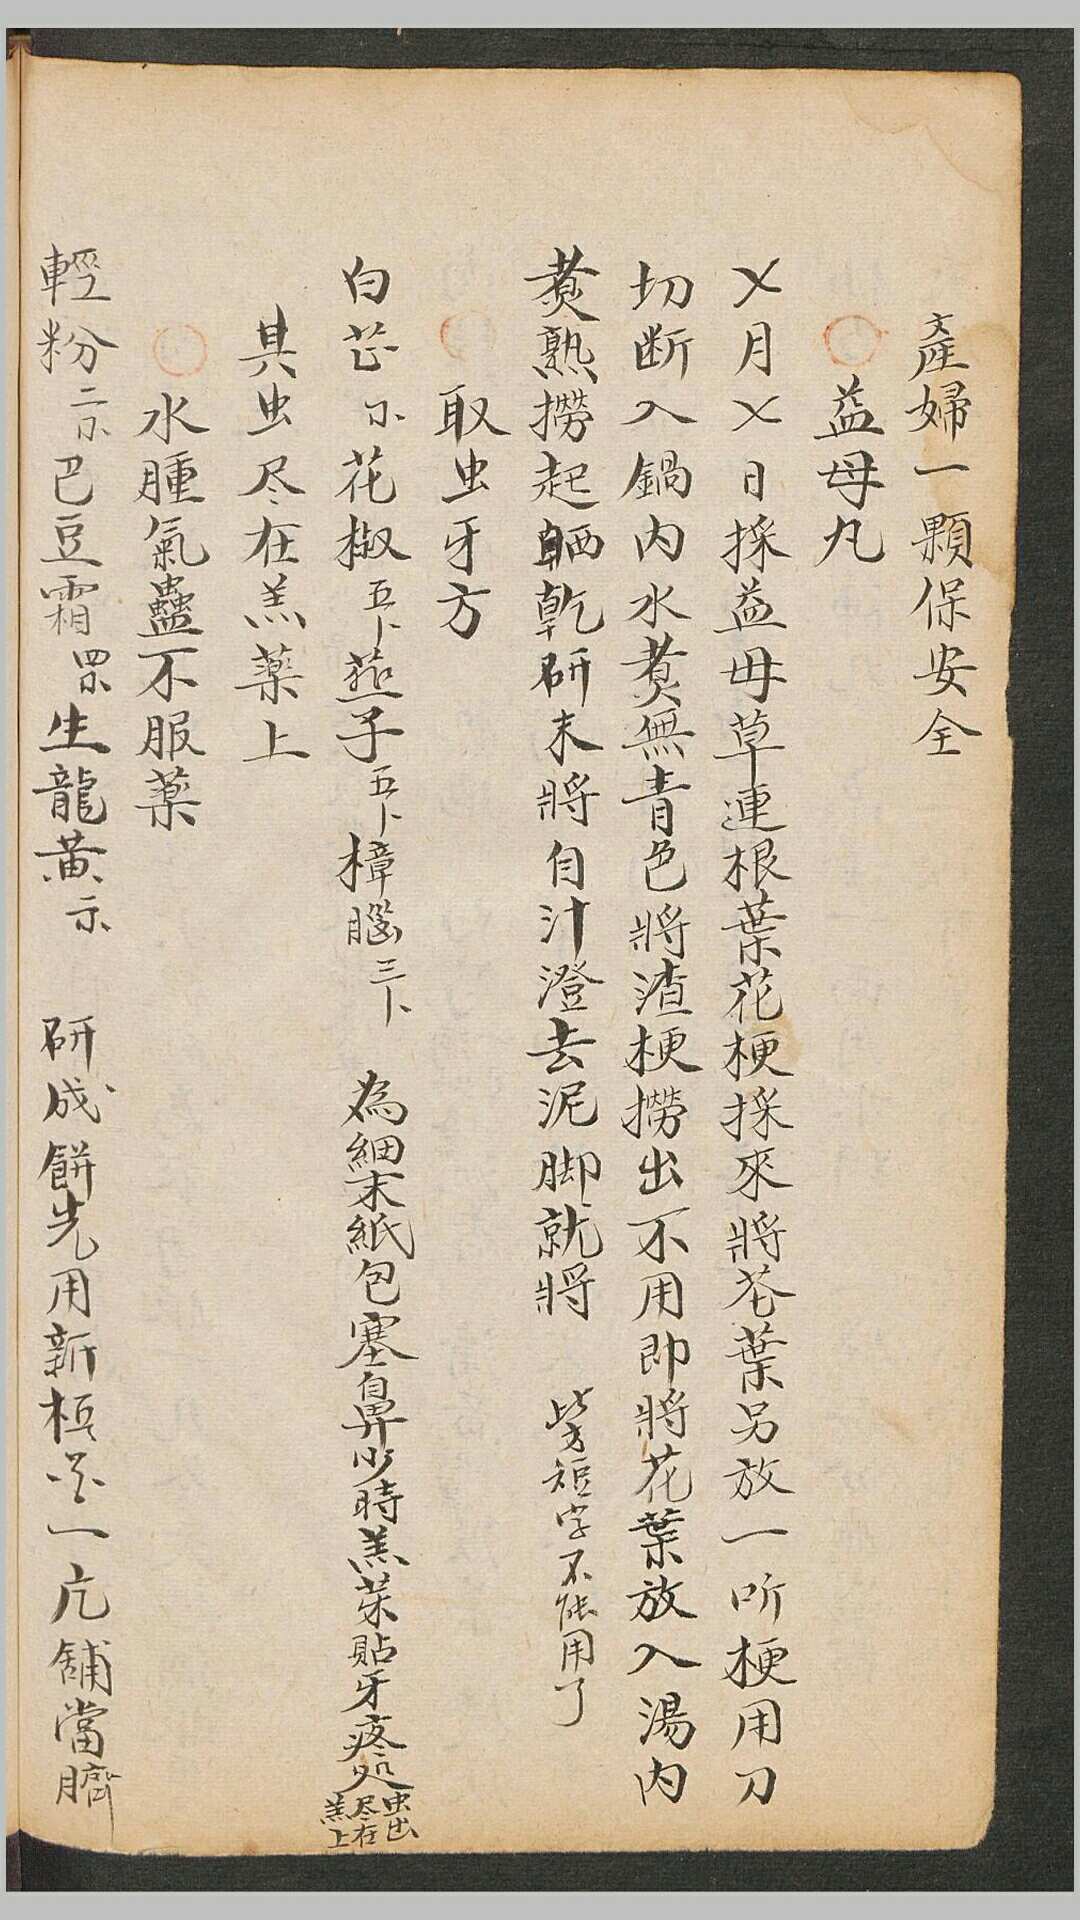 產婦一顆保安全
益母丸
〤月〤日採益母草連根葉花梗採來將花葉另放一所梗用刀
切断入鍋內水煑無青色將渣梗撈出不用即將花葉放入湯內
煑熟撈起晒乾研末將自汁澄去泥脚就將 皆短字不能用了
取虫牙方
白芷 花椒五卜 子五卜樟腦三卜 為細末紙包塞鼻少時羔菜貼牙疼処虫出尽在羔上
具虫尽在羔薬上
水腫氣蠱不服薬
輕粉二 巴豆霜 生龍黃 研成餅先用新 一 舖當臍